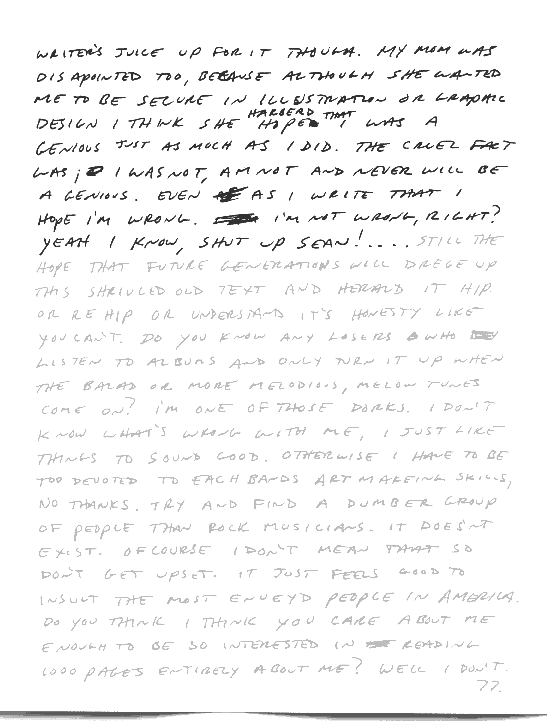 WRITER'S JUICE UP FOR IT THOUGH. MY MOM WAS
DISAPOINTED TOO, BECAUSE ALTHOUGH SHE WANTED
ME TO BE SECURE IN ILLUSTRATION OR GRAPHIC
HARBERD THAT
DESIGN I THINK SHE HOPED I WAS A
GENIOUS JUST AS MUCH AS I DID. THE CRUEL FACT
WAS; I WAS NOT, AM NOT AND NEVER WILL BE
A GENIOUS. EVEN AS I WRITE THAT I
HOPE I'M WRONG. I'M NOT WRONG, RIGHT?
YEAH I KNOW, SHUT UP SEAN!.... STILL THE
HOPE THAT FUTURE GENERATIONS WILL DREGE UP
THIS SHRIVLED OLD TEXT AND HERALD IT HIP
OR RE HIP OR UNDERSTAND IT'S HONESTY LIKE
YOU CAN'T. DO YOU KNOW ANY LOSERS WHO
LISTEN TO ALBUMS AND ONLY TURN IT UP WHEN
THE BALAD OR MORE MELODIOUS, MELOW TUNES
COME ON? I'M ONE OF THOSE DORKS. I DON'T
KNOW WHAT'S WRONG WITH ME, I JUST LIKE
THINGS TO SOUND GOOD. OTHERWISE I HAVE TO BE
TOO DEVOTED TO EACH BANDS ART MAKEING SKILLS,
NO THANKS. TRY AND FIND A DUMBER GROUP
OF PEOPLE THAN ROCK MUSICIANS. IT DOESN'T
EXIST. OFCOURSE I DON'T MEAN THAT SO
DON'T GET UPSET. IT JUST FEELS GOOD TO
INSULT THE MOST ENVEYD PEOPLE IN AMERICA.
DO YOU THINK I THINK YOU CARE ABOUT ME
ENOUGH TO BE SO INTERESTED IN READING
1000 PAGES ENTIRELY ABOUT ME? WELL I DON'T.
77.